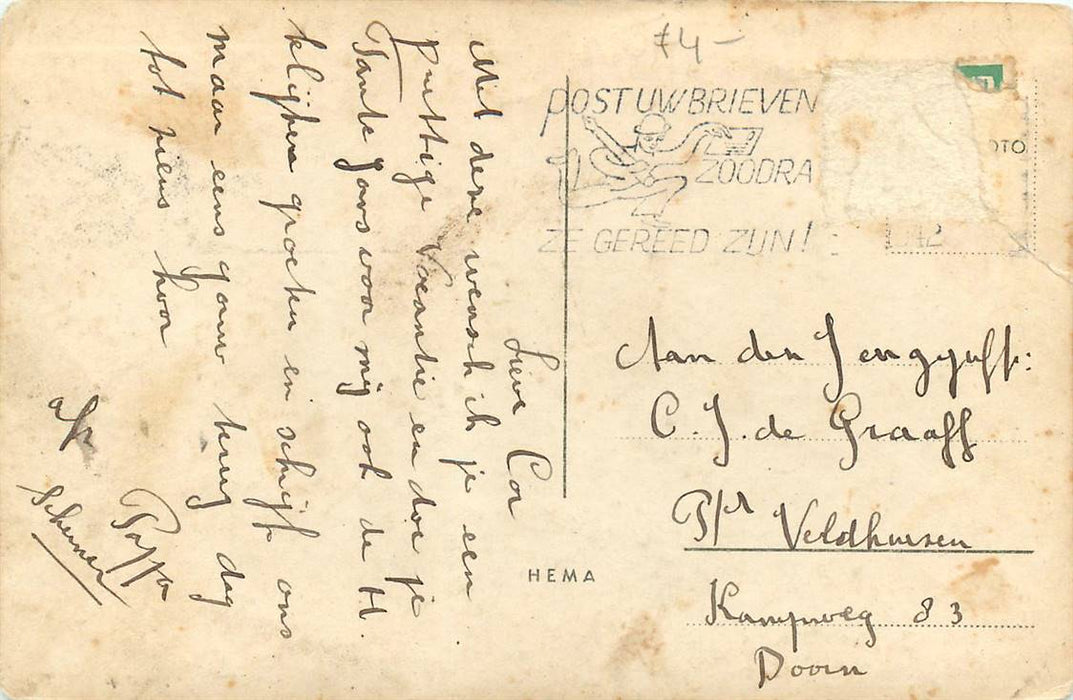 Lieve Cor
Met deze wensch ik je een
prettige Vacantie en doe je
Tante Jans voor mij ook de H.
groeten en schrijf ons
maar eens gauw terug dag
tot ziens hoor
Pappa
ƒ4-
POST UW BRIEVEN
ZOODRA
ZE GEREED ZIJN!
OTO
42
Aan den Jengqjuff:
C. J. de Graaff
P/r Veldhuisen
Kampweg 83
Doorn
HEMA